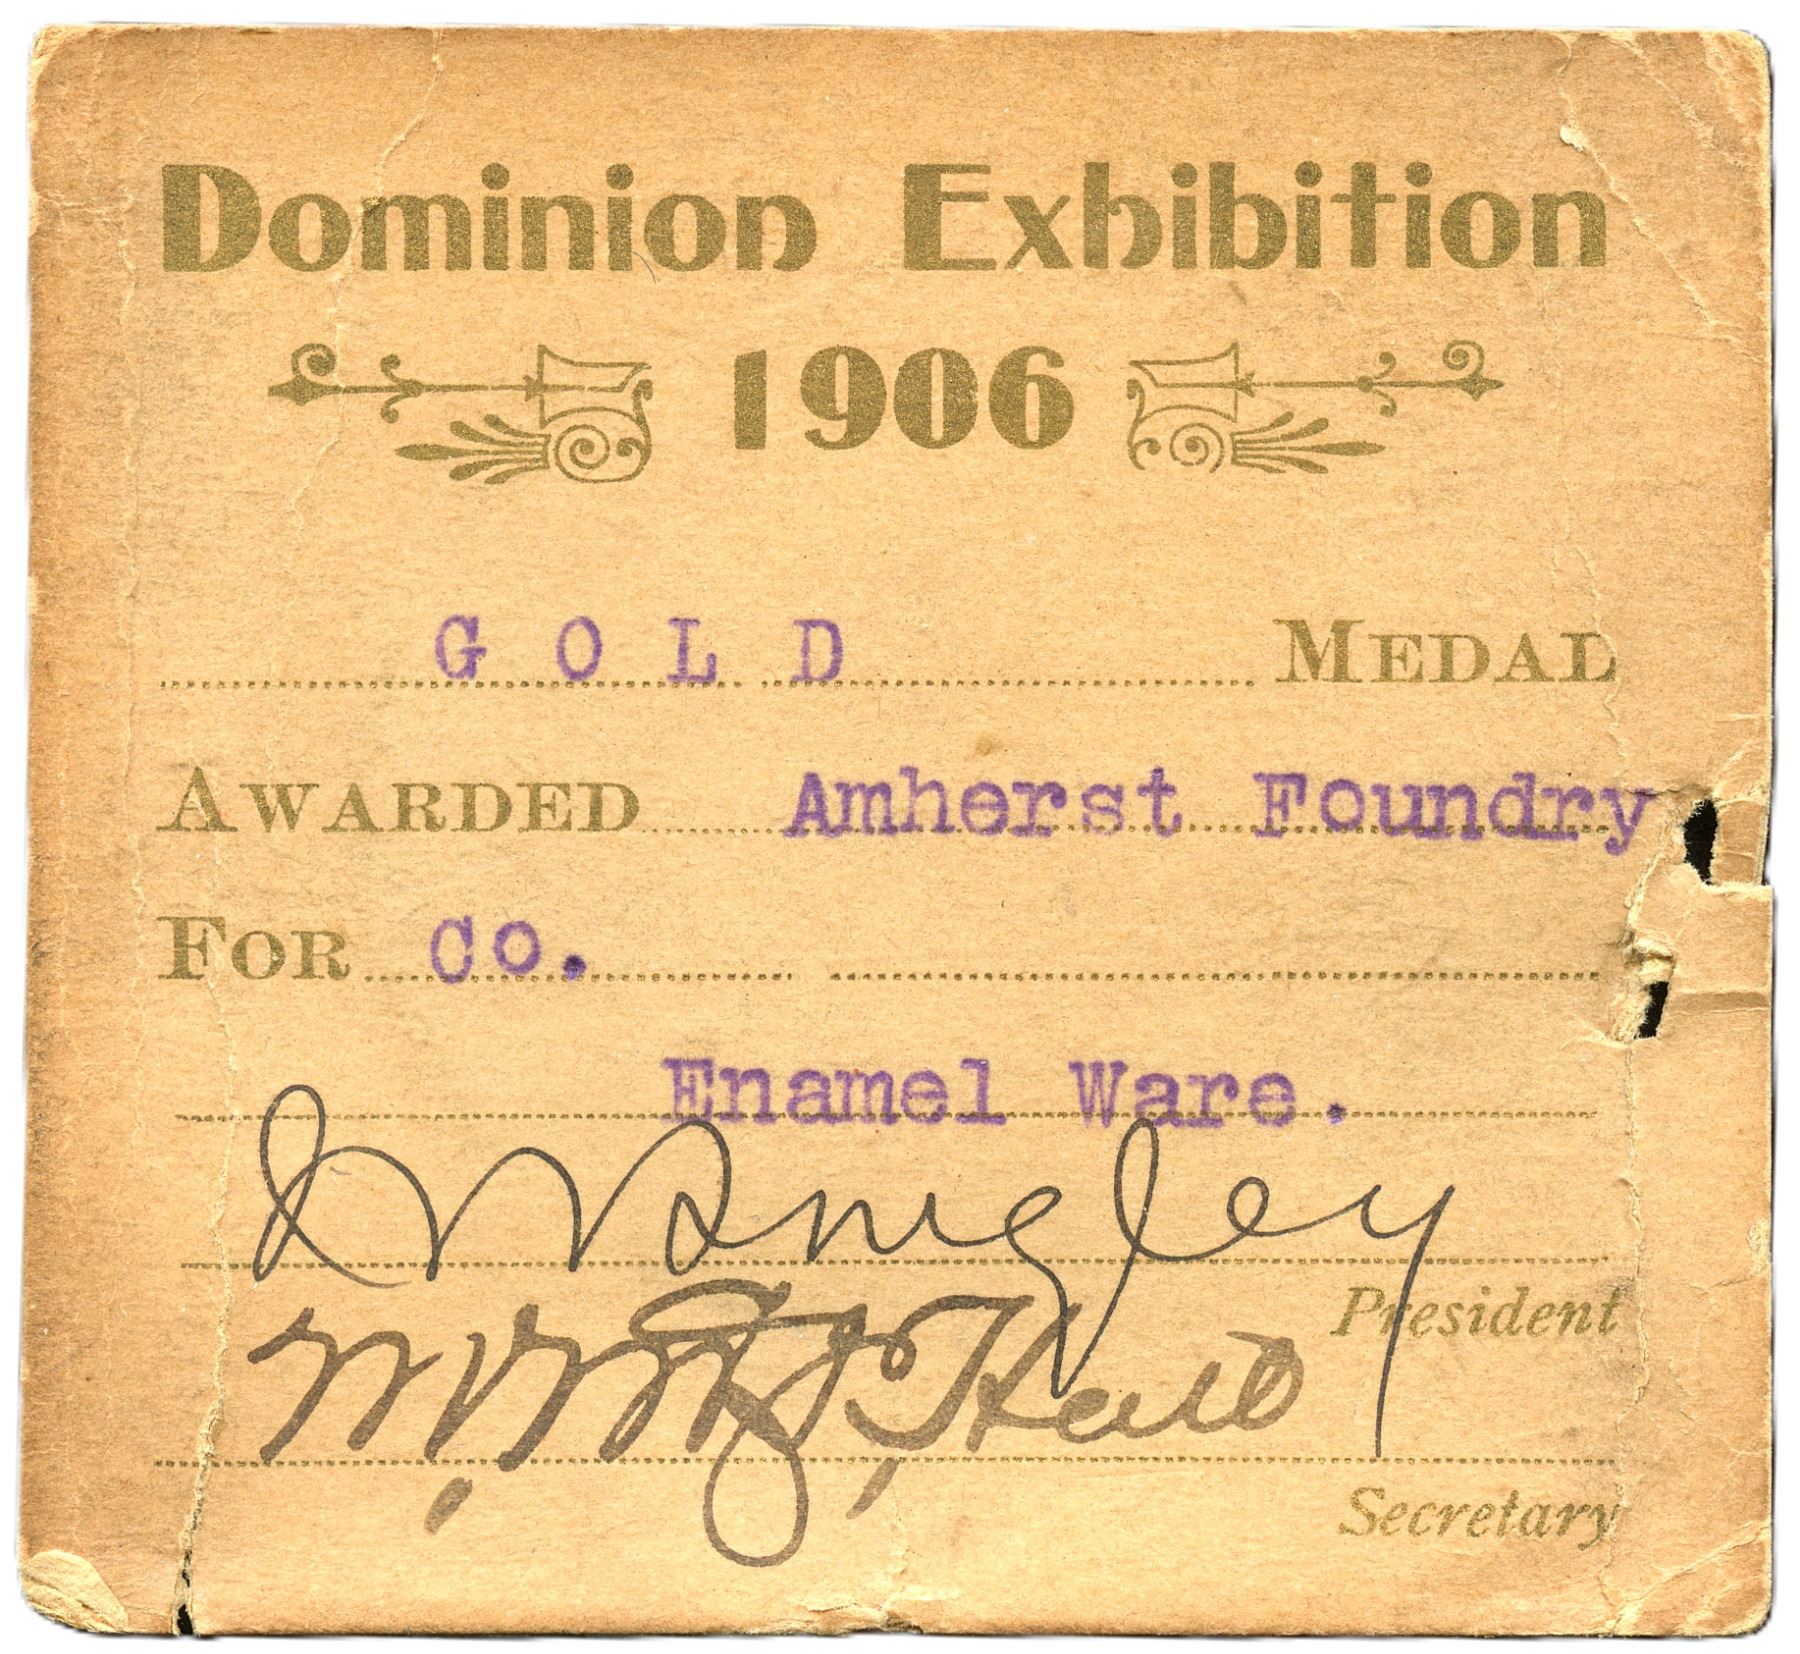 Dominion Exhibition
1906
GOLD MEDAL
AWARDED Amherst Foundry
FOR Co.
Enamel Ware.
President
Secretary